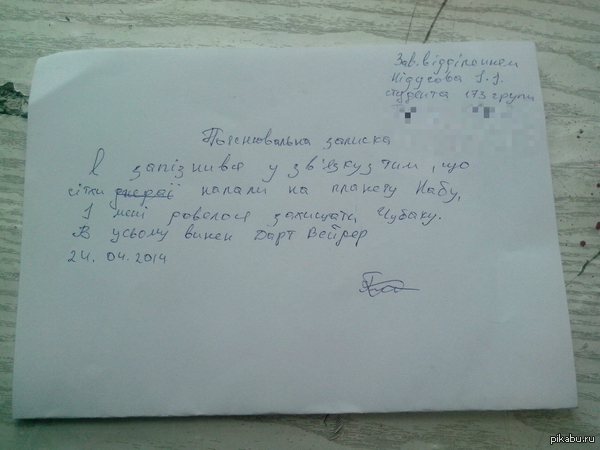 Зав. відділенням
Нідзова І.І.
студента 173 групи
Пояснювальна записка
Я запізнився у зв'язку з тим, що
сітхи джедаї напали на планету Набу,
І мені довелося захищати Чубаку.
В усьому винен Дарт Вейдер
24.04.2014
pikabu.ru